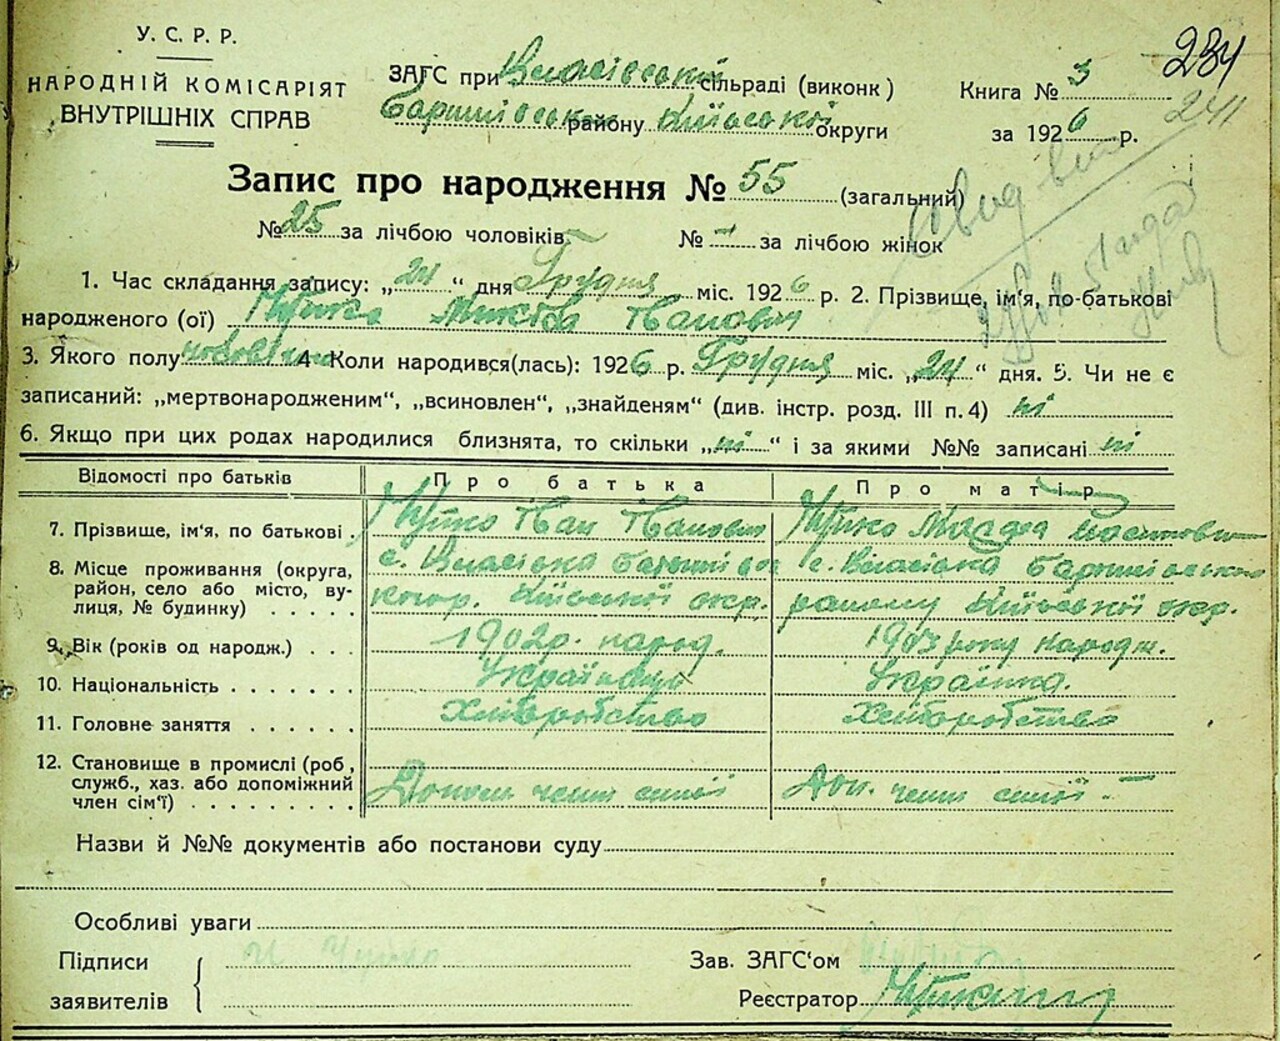 У. С. Р. Р.
НАРОДНІЙ КОМІСАРІЯТ
ВНУТРІШНІХ СПРАВ
234
241
ЗАГС при Власівській сільраді (виконк)
Баришівськ району Київської округи
Книга № 3
за 1926 р.
Запис про народження № 55 (загальний)
№ 25 за лічбою чоловіків № - за лічбою жінок
1. Час складання запису: „24" дня Грудня міс. 1926 р. 2. Прізвище, ім'я, по-батькові
народженого (ої) Іванович
3. Якого полу 4. Коли народився(лась): 1926 р. Грудня міс. „24" дня. 5. Чи не є
записаний: „мертвонародженим", „всиновлен", „знайденям" (див. інстр. розд. III п. 4) ні
6. Якщо при цих родах народилися близнята, то скільки „ні" і за якими №№ записані ні
Відомості про батьків
Про батька
Про матір
7. Прізвище, ім'я, по батькові Іван Іванович
8. Місце проживання (округа, район, село або місто, вулиця, № будинку) с. Власівка Київської окр. с. Власівка району Київської окр.
9. Вік (років од народж.) 1902 р. народ. 1903 року народж.
10. Національність Українець Українка.
11. Головне заняття Хліборобство Хліборобство
12. Становище в промислі (роб, служб., хаз. або допоміжний член сім'ї) Допом член сімії Доп. член сімії -
Назви й №№ документів або постанови суду
Особливі уваги
Підписи
заявителів
Зав. ЗАГС'ом
Реєстратор